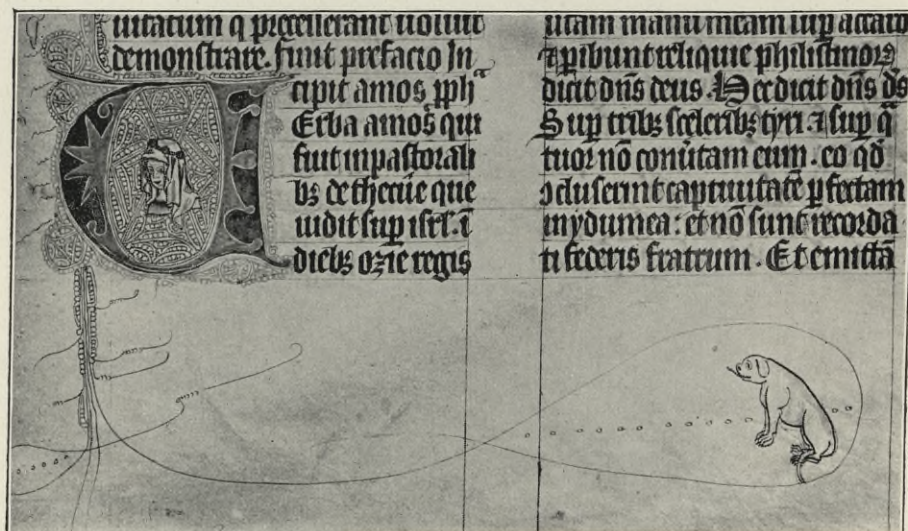 uitatum q precellerant uoluit
demonstrare. finit prefacio In
cipit amos pph̄a
Erba amos qui
fuit in pastorali
bꝫ de thecue que
uidit sup isrl. ī
diebꝫ ozie regis
manum meam sup accaro
⁊ pibunt relique philistinoꝝ
dicit dn̄s deus. Hec dicit dn̄s ds̄
Sup tribꝫ sceleribꝫ tyri. ⁊ sup q̄
tuor nō conūtam eum. eo qd̄
ꝯcluserint captiuitatē pfectam
in ydumea: et nō sunt recorda
ti federis fratrum. Et emittā